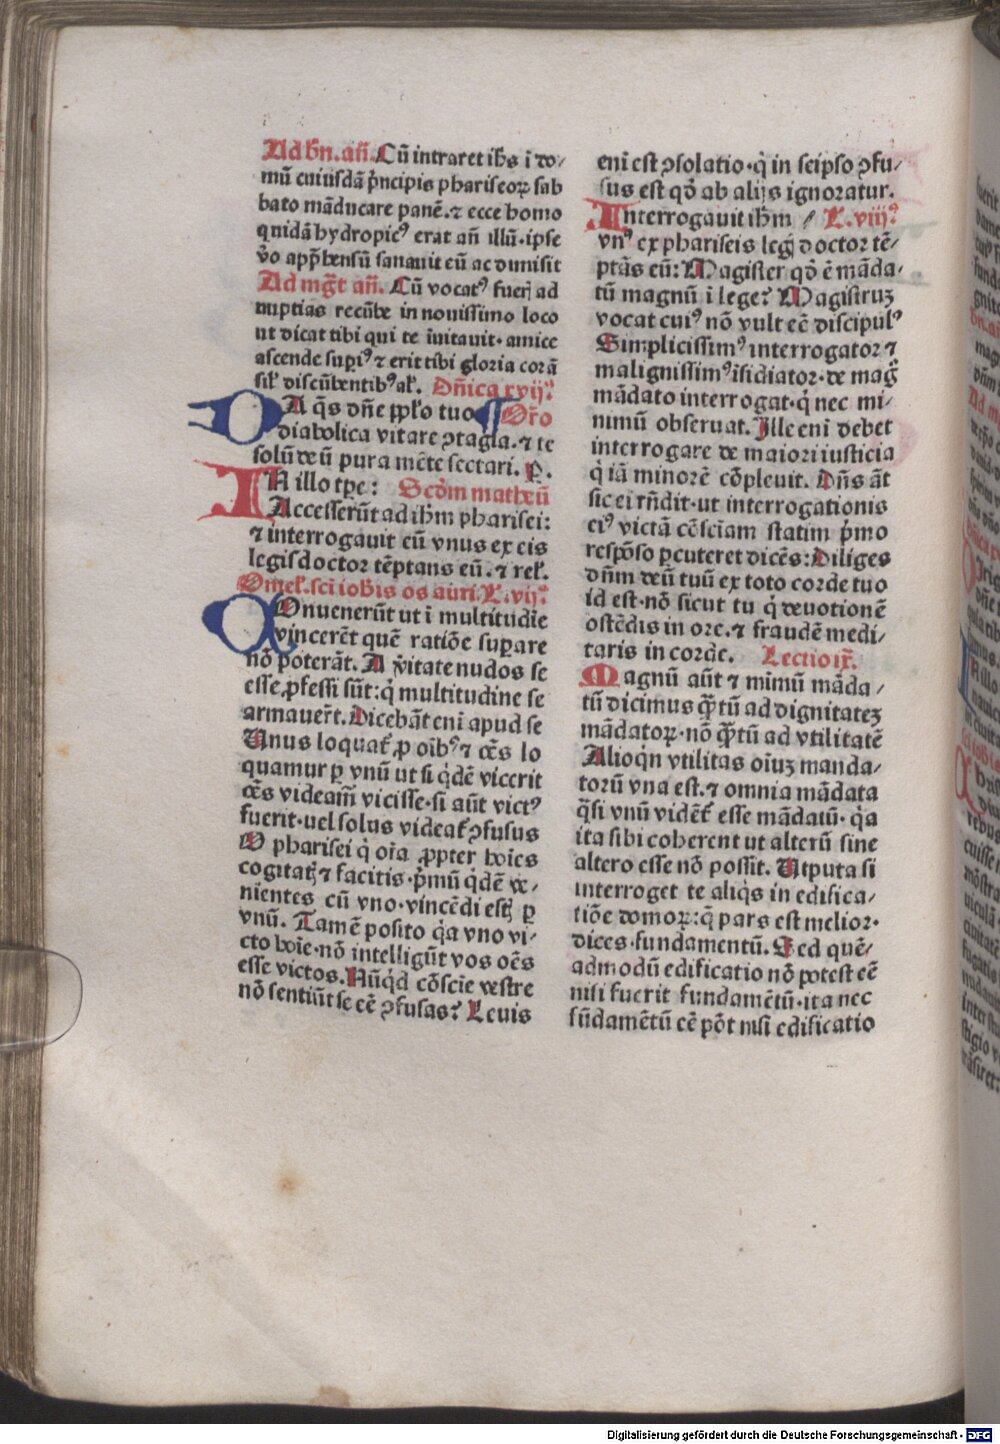 Ad bn̄. an̄. Cū intraret ihs̄ ī do⸗
mū cuiusdā p̄ncipis phariseoꝝ sab
bato māducare panē. ⁊ ecce homo
quidā hydropicꝰ erat an̄ illū. ipse
ṽo app̄hensū sanauit eū ac dimisit
Ad mḡt an̄. Cū vocatꝰ fuerꝭ ad
nuptias recūbe in nouissimo loco
ut dicat tibi qui te īuitauit. amice
ascende supiꝰ ⁊ erit tibi gloria corā
sil̄ discūbentibꝰ al̄. Dn̄ica xvij.ᵃ
DA q̄s dn̄e pp̄lo tuo Or̄o
diabolica vitare ꝯtagia. ⁊ te
solū deū pura mēte sectari. P.
IN illo tp̄e: Scd̄m matheū
Accesserūt ad ihm̄ pharisei:
⁊ interrogauit eū vnus ex eis
legisdoctor tēptans eū. ⁊ rel̄.
Omel̄. sci iohis os auri. L. vij.ᵃ
COnuenerūt ut ī multitudīe
vincerēt quē ratiōe supare
nō poterāt. A ṽitate nudos se
esse ꝓfessi sūt: q̇ multitudine se
armauer̄t. Dicebāt enī apud se
Unus loquat̄ ꝓ oībꝰ ⁊ oēs lo
quamur ꝑ vnū ut si qd̄ē vicerit
oēs videam̄ vicisse. si aūt victꝰ
fuerit. uel solus videat̄ ꝯfusus
O pharisei q̇ oīa ꝓpter hoīes
cogitatꝭ ⁊ facitis. pͥmū qd̄ē ve⸗
nientes cū vno. vincēdi estꝭ ꝑ
vnū. Tamē posito qͥa vno vi⸗
cto hoīe. nō intelligūt vos oēs
esse victos. Nūqd̄ cōscīe vestre
nō sentiūt se eē ꝯfusas? Leuis
enī est ꝯsolatio. q̇ in seipso ꝯfu⸗
sus est qd̄ ab alijs ignoratur.
INterrogauit ihm̄ L. viij.ᵃ
vnꝰ ex phariseis legꝭ doctor tē⸗
ptās eū: Magister qd̄ ē māda⸗
tū magnū ī lege? Magistruꝫ
vocat cuiꝰ nō vult eē discipulꝰ
Simplicissimꝰ interrogator ⁊
malignissimꝰ īsidiator. de mag̊
mādato interrogat. q̇ nec mi⸗
nimū obseruat. Ille enī debet
interrogare de maiori iusticia
q̇ iā minorē cōpleuit. Dn̄s āt
sic ei rn̄dit. ut interrogationis
eiꝰ victā cōsciam statim pͥmo
respōso ꝑcuteret dicēs: Diliges
dn̄m deū tuū ex toto corde tuo
id est. nō sicut tu q̇ deuotionē
ostēdis in ore. ⁊ fraudē medi⸗
taris in corde. Lectio ix.
Magnū aūt ⁊ mimū māda⸗
tū dicimus qͣꝫtū ad dignitateꝫ
mādatoꝝ. nō qͣꝫtū ad vtilitatē
Alioqn̄ vtilitas oīuꝫ manda⸗
torū vna est. ⁊ omnia mādata
qͣsi vnū vidēt̄ esse mādatū. qͥa
ita sibi coherent ut alterū sine
altero esse nō possit. Utputa si
interroget te aliqͥs in edifica⸗
tiōe domoꝝ: q̄ pars est melior.
dices. fundamentū. Sed quē⸗
admodū edificatio nō potest eē
nisi fuerit fundamētū. ita nec
fūdamētū eē pōt nisi edificatio
Digitalisierung gefördert durch die Deutsche Forschungsgemeinschaft - DFG